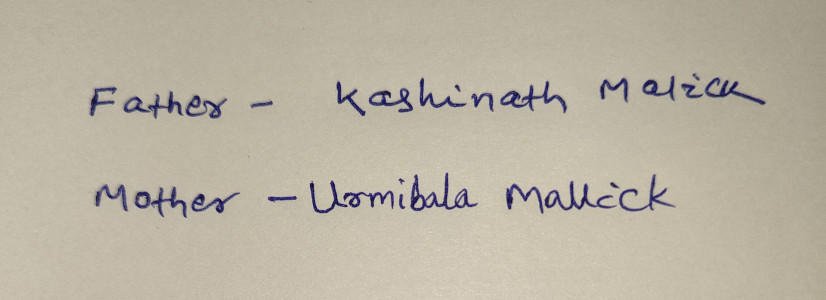 Father - Kashinath Malick
Mother - Urmibala Mallick